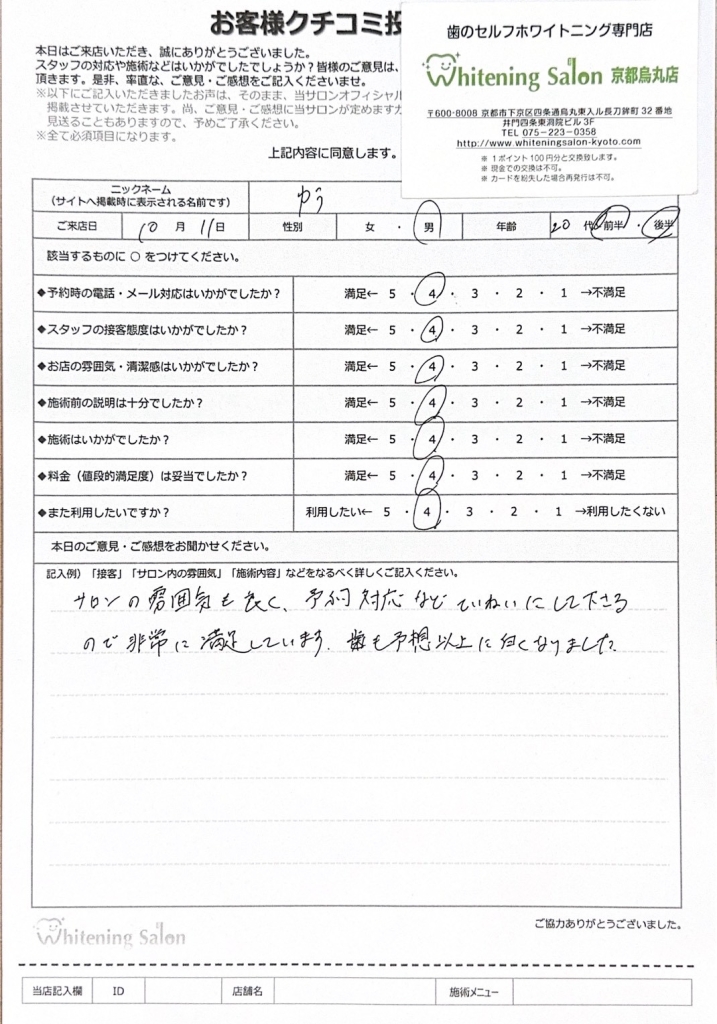 お客様クチコミ投
本日はご来店いただき、誠にありがとうございました。
スタッフの対応や施術などはいかがでしたでしょうか？皆様のご意見は、
頂きます。是非、率直な、ご意見・ご感想をご記入くださいませ。
※以下にご記入いただきましたお声は、そのまま、当サロンオフィシャル
掲載させていただきます。尚、ご意見・ご感想に当サロンが定めますガ
見送ることもありますので、予めご了承ください。
※全て必須項目になります。
上記内容に同意します。
歯のセルフホワイトニング専門店
Whitening Salon 京都烏丸店
〒600-8008 京都市下京区四条通烏丸東入ル長刀鉾町 32 番地
井門四条東洞院ビル 3F
TEL 075-223-0358
http://www.whiteningsalon-kyoto.com
※ 1 ポイント 100 円分と交換致します。
※ 現金での交換は不可。
※ カードを紛失した場合再発行は不可。
ニックネーム
（サイトへ掲載時に表示される名前です）
ゆう
ご来店日 10 月 11 日 性別 女 ・ 男 年齢 20 代 前半 ・ 後半
該当するものに ○ をつけてください。
◆予約時の電話・メール対応はいかがでしたか？ 満足← 5 ・ 4 ・ 3 ・ 2 ・ 1 →不満足
◆スタッフの接客態度はいかがでしたか？ 満足← 5 ・ 4 ・ 3 ・ 2 ・ 1 →不満足
◆お店の雰囲気・清潔感はいかがでしたか？ 満足← 5 ・ 4 ・ 3 ・ 2 ・ 1 →不満足
◆施術前の説明は十分でしたか？ 満足← 5 ・ 4 ・ 3 ・ 2 ・ 1 →不満足
◆施術はいかがでしたか？ 満足← 5 ・ 4 ・ 3 ・ 2 ・ 1 →不満足
◆料金（値段的満足度）は妥当でしたか？ 満足← 5 ・ 4 ・ 3 ・ 2 ・ 1 →不満足
◆また利用したいですか？ 利用したい← 5 ・ 4 ・ 3 ・ 2 ・ 1 →利用したくない
本日のご意見・ご感想をお聞かせください。
記入例）「接客」「サロン内の雰囲気」「施術内容」などをなるべく詳しくご記入ください。
サロンの雰囲気も良く、予約対応などていねいにして下さる
ので非常に満足しています。歯も予想以上に白くなりました。
ご協力ありがとうございました。
Whitening Salon
当店記入欄 ID 店舗名 施術メニュー